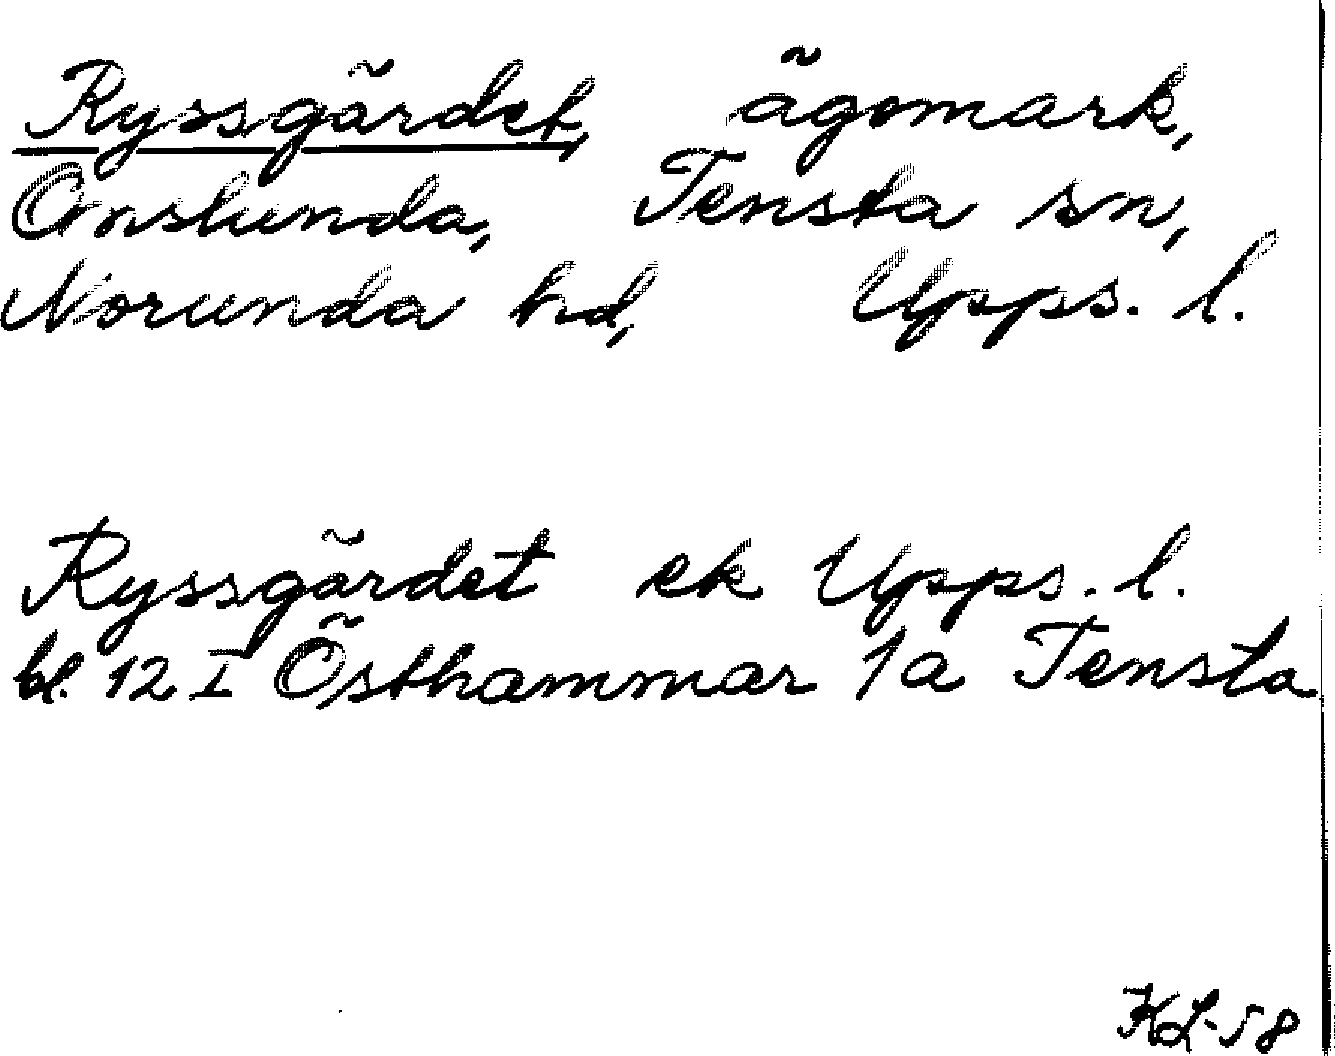 Ryssgärdet, ägomark,
Onslunda, Tensta sn,
Norunda hd, Upps. l.
Ryssgärdet ek Upps. l.
bl. 12 I Östhammar 1a Tensta
KL-58